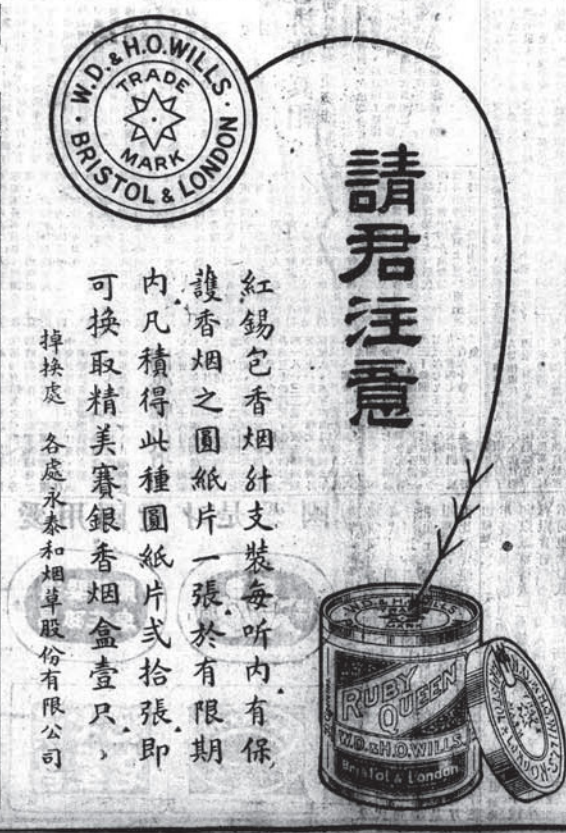 W.D.&H.O.WILLS
BRISTOL & LONDON
TRADE
MARK
請君注意
紅錫包香烟支裝每听内有保
護香烟之圓紙片一張於有限期
内凡積得此種圓紙片弍拾張即
可換取精美賽銀香烟盒壹只，
掉換處 各處永泰和烟草股份有限公司
W.D.&H.O.WILLS
RUBY
QUEEN
W.D.&H.O.WILLS.
Bristol & London